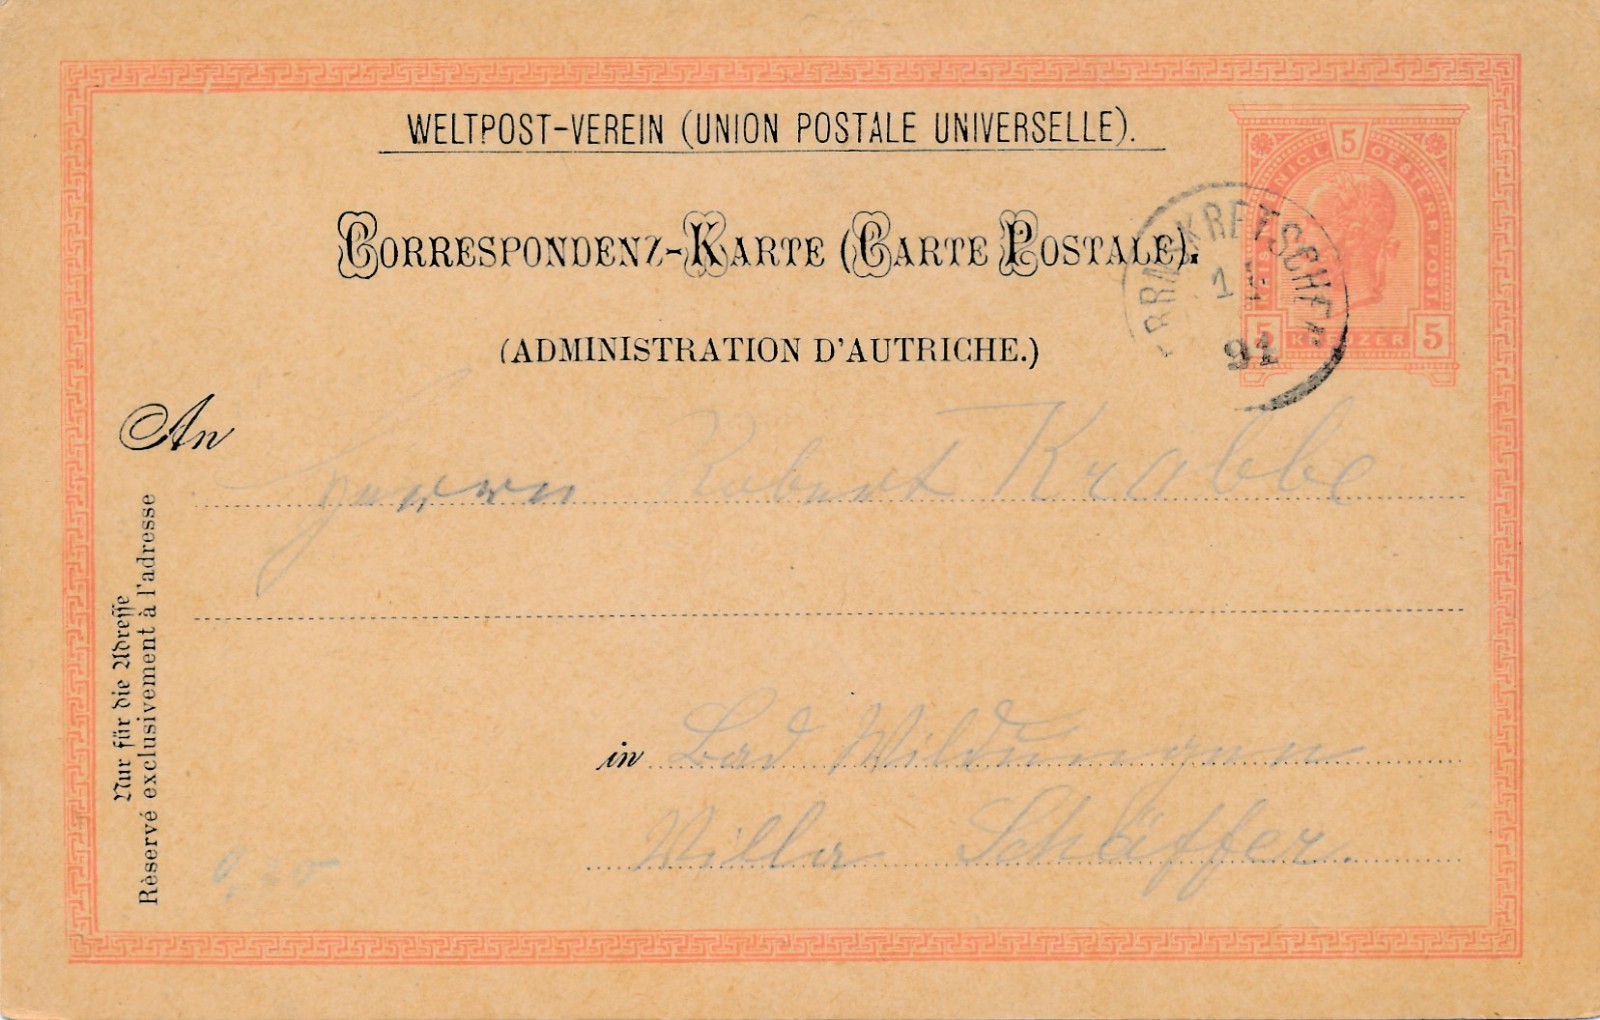 WELTPOST-VEREIN (UNION POSTALE UNIVERSELLE).
CORRESPONDENZ-KARTE (CARTE POSTALE).
(ADMINISTRATION D'AUTRICHE.)
5
KAIS. KÖNIGL. OESTERR. POST.
5 KREUZER 5
KRETSCHEN
91
An
Herrn Robert Krabbe
in Bad Wildungen
Villa Schäffer.
Nur für die Adresse
Rèservé exclusivement à l'adresse